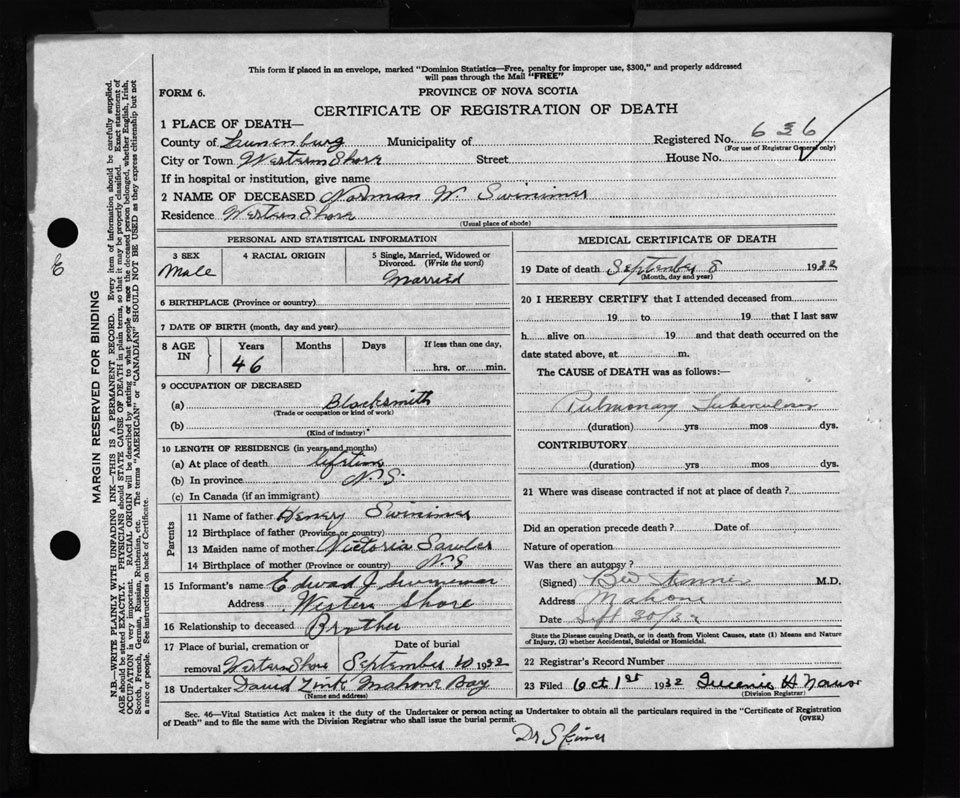 This form if placed in an envelope, marked "Dominion Statistics—Free, penalty for improper use, $300," and properly addressed
will pass through the Mail "FREE"
FORM 6.
PROVINCE OF NOVA SCOTIA
CERTIFICATE OF REGISTRATION OF DEATH
1 PLACE OF DEATH—
Registered No. 636
County of Lunenburg Municipality of
(For use of Registrar General only)
City or Town Western Shore Street House No.
If in hospital or institution, give name
2 NAME OF DECEASED Norman W. Swinimer
Residence Western Shore
(Usual place of abode)
PERSONAL AND STATISTICAL INFORMATION
3 SEX 4 RACIAL ORIGIN 5 Single, Married, Widowed or
Divorced. (Write the word)
Male Married
6 BIRTHPLACE (Province or country)
7 DATE OF BIRTH (month, day and year)
8 AGE IN Years Months Days If less than one day,
46 hrs. or min.
9 OCCUPATION OF DECEASED
(a) Blacksmith
(Trade or occupation or kind of work)
(b)
(Kind of industry)
10 LENGTH OF RESIDENCE (in years and months)
(a) At place of death lifetime
(b) In province N.S.
(c) In Canada (if an immigrant)
Parents
11 Name of father Henry Swinimer
12 Birthplace of father (Province or country)
13 Maiden name of mother Victoria Sawler
14 Birthplace of mother (Province or country) N.S
15 Informant's name Edward J
Address Western Shore
16 Relationship to deceased Brother
17 Place of burial, cremation or Date of burial
removal Western Shore September 10 1932
18 Undertaker David Zink Mahone Bay
(Name and address)
MEDICAL CERTIFICATE OF DEATH
19 Date of death September 8 1932
(Month, day and year)
20 I HEREBY CERTIFY that I attended deceased from
19 to 19 that I last saw
h alive on 19 and that death occurred on the
date stated above, at m.
The CAUSE of DEATH was as follows:—
Pulmonary Tuberculosis
(duration) yrs mos dys.
CONTRIBUTORY
(duration) yrs mos dys.
21 Where was disease contracted if not at place of death?
Did an operation precede death? Date of
Nature of operation
Was there an autopsy?
(Signed) M.D.
Address Mahone
Date Sept 30/32
State the Disease causing Death, or in death from Violent Causes, state (1) Means and Nature
of Injury, (2) whether Accidental, Suicidal or Homicidal.
22 Registrar's Record Number
23 Filed Oct 1st 1932
(Division Registrar)
Sec. 46—Vital Statistics Act makes it the duty of the Undertaker or person acting as Undertaker to obtain all the particulars required in the "Certificate of Registration
of Death" and to file the same with the Division Registrar who shall issue the burial permit. (OVER)
MARGIN RESERVED FOR BINDING
N.B.—WRITE PLAINLY WITH UNFADING INK—THIS IS A PERMANENT RECORD. Every item of information should be carefully supplied.
AGE should be stated EXACTLY. PHYSICIANS should STATE CAUSE OF DEATH in plain terms, so that it may be properly classified. Exact statement of
OCCUPATION is very important. RACIAL ORIGIN will be described by stating to what people or race the deceased person belonged, whether English, Irish,
Scotch, French, German, Russian, Ruthenian, etc. The terms "AMERICAN" or "CANADIAN" SHOULD NOT BE USED as they express citizenship but not
a race or people. See instructions on back of Certificate.